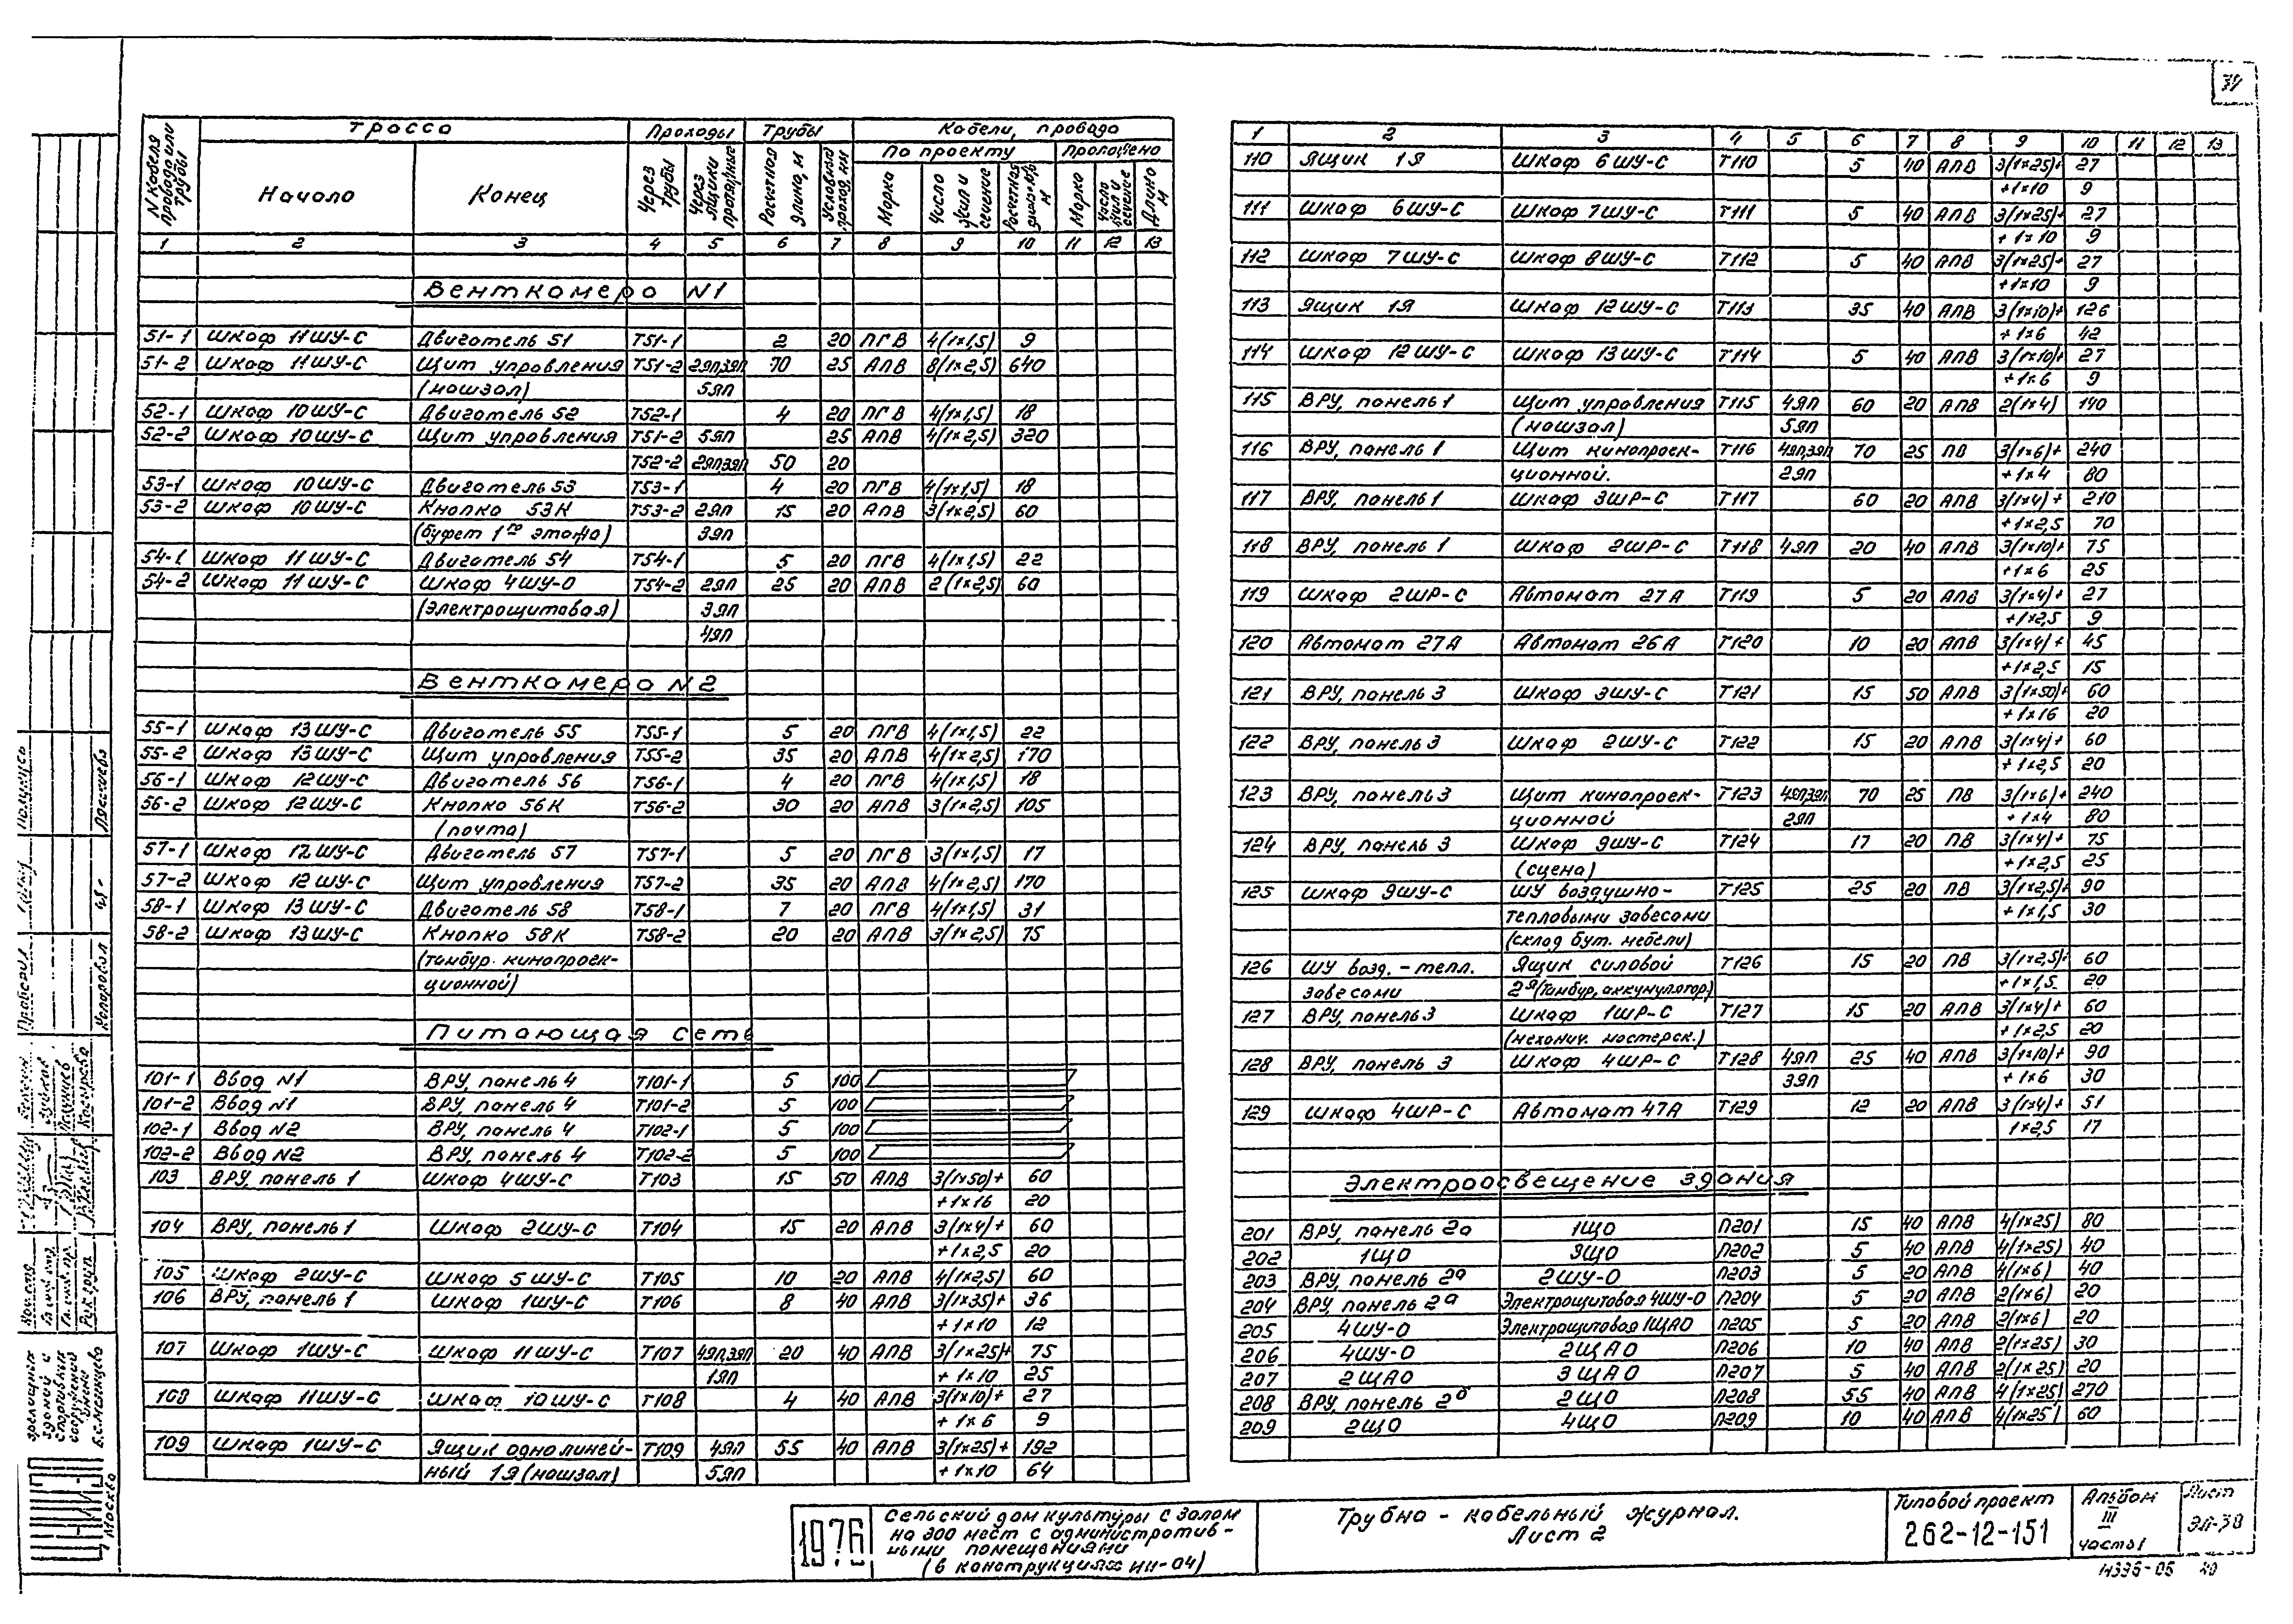 34
N кабеля провода или трубы
Трасса
Проходы
Трубы
Кабели, провода
По проекту
Проложено
Начало
Конец
Через трубы
Через ящики протяжные
Расчетная длина, м
Условный проход, мм
Марка
Число жил и сечение
Марка
Число жил и сечение
Длина м
1 2 3 4 5 6 7 8 9 10 11 12 13
Венткамера N1
51-1 Шкаф 11ШУ-С Двигатель 51 Т51-1 2 20 ПГВ 4(1×1,5) 9
51-2 Шкаф 11ШУ-С Щит управления Т51-2 2ЯП,3ЯП 70 25 АПВ 8(1×2,5) 640
(машзал) 5ЯП
52-1 Шкаф 10ШУ-С Двигатель 52 Т52-1 4 20 ПГВ 4(1×1,5) 18
52-2 Шкаф 10ШУ-С Щит управления Т51-2 5ЯП 25 АПВ 4(1×2,5) 320
Т52-2 2ЯП,3ЯП 50 20
53-1 Шкаф 10ШУ-С Двигатель 53 Т53-1 4 20 ПГВ 4(1×1,5) 18
53-2 Шкаф 10ШУ-С Кнопка 53К Т53-2 2ЯП 15 20 АПВ 3(1×2,5) 60
(буфет 1го этажа) 3ЯП
54-1 Шкаф 11ШУ-С Двигатель 54 Т54-1 5 20 ПГВ 4(1×1,5) 22
54-2 Шкаф 11ШУ-С Шкаф 4ШУ-О Т54-2 2ЯП 25 20 АПВ 2(1×2,5) 60
(электрощитовая) 3ЯП
4ЯП
Венткамера N2
55-1 Шкаф 13ШУ-С Двигатель 55 Т55-1 5 20 ПГВ 4(1×1,5) 22
55-2 Шкаф 13ШУ-С Щит управления Т55-2 35 20 АПВ 4(1×2,5) 170
56-1 Шкаф 12ШУ-С Двигатель 56 Т56-1 4 20 ПГВ 4(1×1,5) 18
56-2 Шкаф 12ШУ-С Кнопка 56К Т56-2 30 20 АПВ 3(1×2,5) 105
(почта)
57-1 Шкаф 12ШУ-С Двигатель 57 Т57-1 5 20 ПГВ 3(1×1,5) 17
57-2 Шкаф 12ШУ-С Щит управления Т57-2 35 20 АПВ 4(1×2,5) 170
58-1 Шкаф 13ШУ-С Двигатель 58 Т58-1 7 20 ПГВ 4(1×1,5) 31
58-2 Шкаф 13ШУ-С Кнопка 58К Т58-2 20 20 АПВ 3(1×2,5) 75
(тамбур. кинопроек-
ционной)
Питающая сеть
101-1 Ввод N1 ВРУ, панель 4 Т101-1 5 100
101-2 Ввод N1 ВРУ, панель 4 Т101-2 5 100
102-1 Ввод N2 ВРУ, панель 4 Т102-1 5 100
102-2 Ввод N2 ВРУ, панель 4 Т102-2 5 100
103 ВРУ, панель 1 Шкаф 4ШУ-С Т103 15 50 АПВ 3(1×50)+ 60
+1×16 20
104 ВРУ, панель 1 Шкаф 2ШУ-С Т104 15 20 АПВ 3(1×4)+ 60
+1×2,5 20
105 Шкаф 2ШУ-С Шкаф 5ШУ-С Т105 10 20 АПВ 4(1×2,5) 60
106 ВРУ, панель 1 Шкаф 1ШУ-С Т106 8 40 АПВ 3(1×35)+ 36
+1×10 12
107 Шкаф 1ШУ-С Шкаф 11ШУ-С Т107 4ЯП,3ЯП 20 40 АПВ 3(1×25)+ 75
1ЯП +1×10 25
108 Шкаф 11ШУ-С Шкаф 10ШУ-С Т108 4 40 АПВ 3(1×10)+ 27
+1×6 9
109 Шкаф 1ШУ-С Ящик однолиней- Т109 4ЯП 55 40 АПВ 3(1×25)+ 192
ный 1Я (машзал) 5ЯП +1×10 64
1 2 3 4 5 6 7 8 9 10 11 12 13
110 Ящик 1Я Шкаф 6ШУ-С Т110 5 40 АПВ 3(1×25)+ 27
+1×10 9
111 Шкаф 6ШУ-С Шкаф 7ШУ-С Т111 5 40 АПВ 3(1×25)+ 27
+1×10 9
112 Шкаф 7ШУ-С Шкаф 8ШУ-С Т112 5 40 АПВ 3(1×25)+ 27
+1×10 9
113 Ящик 1Я Шкаф 12ШУ-С Т113 35 40 АПВ 3(1×10)+ 126
+1×6 42
114 Шкаф 12ШУ-С Шкаф 13ШУ-С Т114 5 40 АПВ 3(1×10)+ 27
+1×6 9
115 ВРУ, панель 1 Щит управления Т115 4ЯП 60 20 АПВ 2(1×4) 140
(машзал) 5ЯП
116 ВРУ, панель 1 Щит кинопроек- Т116 4ЯП,3ЯП 70 25 ПВ 3(1×6)+ 240
ционной. 2ЯП +1×4 80
117 ВРУ, панель 1 Шкаф 3ШР-С Т117 60 20 АПВ 3(1×4)+ 210
+1×2,5 70
118 ВРУ, панель 1 Шкаф 2ШР-С Т118 4ЯП 20 40 АПВ 3(1×10)+ 75
+1×6 25
119 Шкаф 2ШР-С Автомат 27А Т119 5 20 АПВ 3(1×4)+ 27
+1×2,5 9
120 Автомат 27А Автомат 26А Т120 10 20 АПВ 3(1×4)+ 45
+1×2,5 15
121 ВРУ, панель 3 Шкаф 3ШУ-С Т121 15 50 АПВ 3(1×50)+ 60
+1×16 20
122 ВРУ, панель 3 Шкаф 2ШУ-С Т122 15 20 АПВ 3(1×4)+ 60
+1×2,5 20
123 ВРУ, панель 3 Щит кинопроек- Т123 4ЯП,3ЯП 70 25 ПВ 3(1×6)+ 240
ционной 2ЯП +1×4 80
124 ВРУ, панель 3 Шкаф 9ШУ-С Т124 17 20 ПВ 3(1×4)+ 75
(сцена) +1×2,5 25
125 Шкаф 9ШУ-С ШУ воздушно- Т125 25 20 ПВ 3(1×2,5)+ 90
тепловыми завесами +1×1,5 30
(склад бут. мебели)
126 ШУ возд.-тепл. Ящик силовой Т126 15 20 ПВ 3(1×2,5)+ 60
завесами 2Я (Тамбур, аккумулятор) +1×1,5 20
127 ВРУ, панель 3 Шкаф 1ШР-С Т127 15 20 АПВ 3(1×4)+ 60
(механич. мастерск.) +1×2,5 20
128 ВРУ, панель 3 Шкаф 4ШР-С Т128 4ЯП 25 40 АПВ 3(1×10)+ 90
3ЯП +1×6 30
129 Шкаф 4ШР-С Автомат 47А Т129 12 20 АПВ 3(1×4)+ 51
1×2,5 17
Электроосвещение здания
201 ВРУ, панель 2а 1ЩО П201 15 40 АПВ 4(1×25) 80
202 1ЩО 3ЩО П202 5 40 АПВ 4(1×25) 40
203 ВРУ, панель 2а 2ШУ-О П203 5 20 АПВ 4(1×6) 40
204 ВРУ, панель 2а Электрощитовая 4ШУ-О П204 5 20 АПВ 2(1×6) 20
205 4ШУ-О Электрощитовая 1ЩАО П205 5 20 АПВ 2(1×6) 20
206 4ШУ-О 2ЩАО П206 10 40 АПВ 2(1×25) 30
207 2ЩАО 3ЩАО П207 5 40 АПВ 2(1×25) 20
208 ВРУ, панель 2а 2ЩО П208 55 40 АПВ 4(1×25) 270
209 2ЩО 4ЩО П209 10 40 АПВ 4(1×25) 60
1976
Сельский дом культуры с залом
на 300 мест с административ-
ными помещениями
(в конструкциях ИИ-04)
Трубно-кабельный журнал.
Лист 2
Типовой проект
262-12-151
Альбом
III
часть 1
Лист
ЭЛ-38
зрелищных
зданий и
спортивных
сооружений
имени
Б.С.Мезенцева
Москва